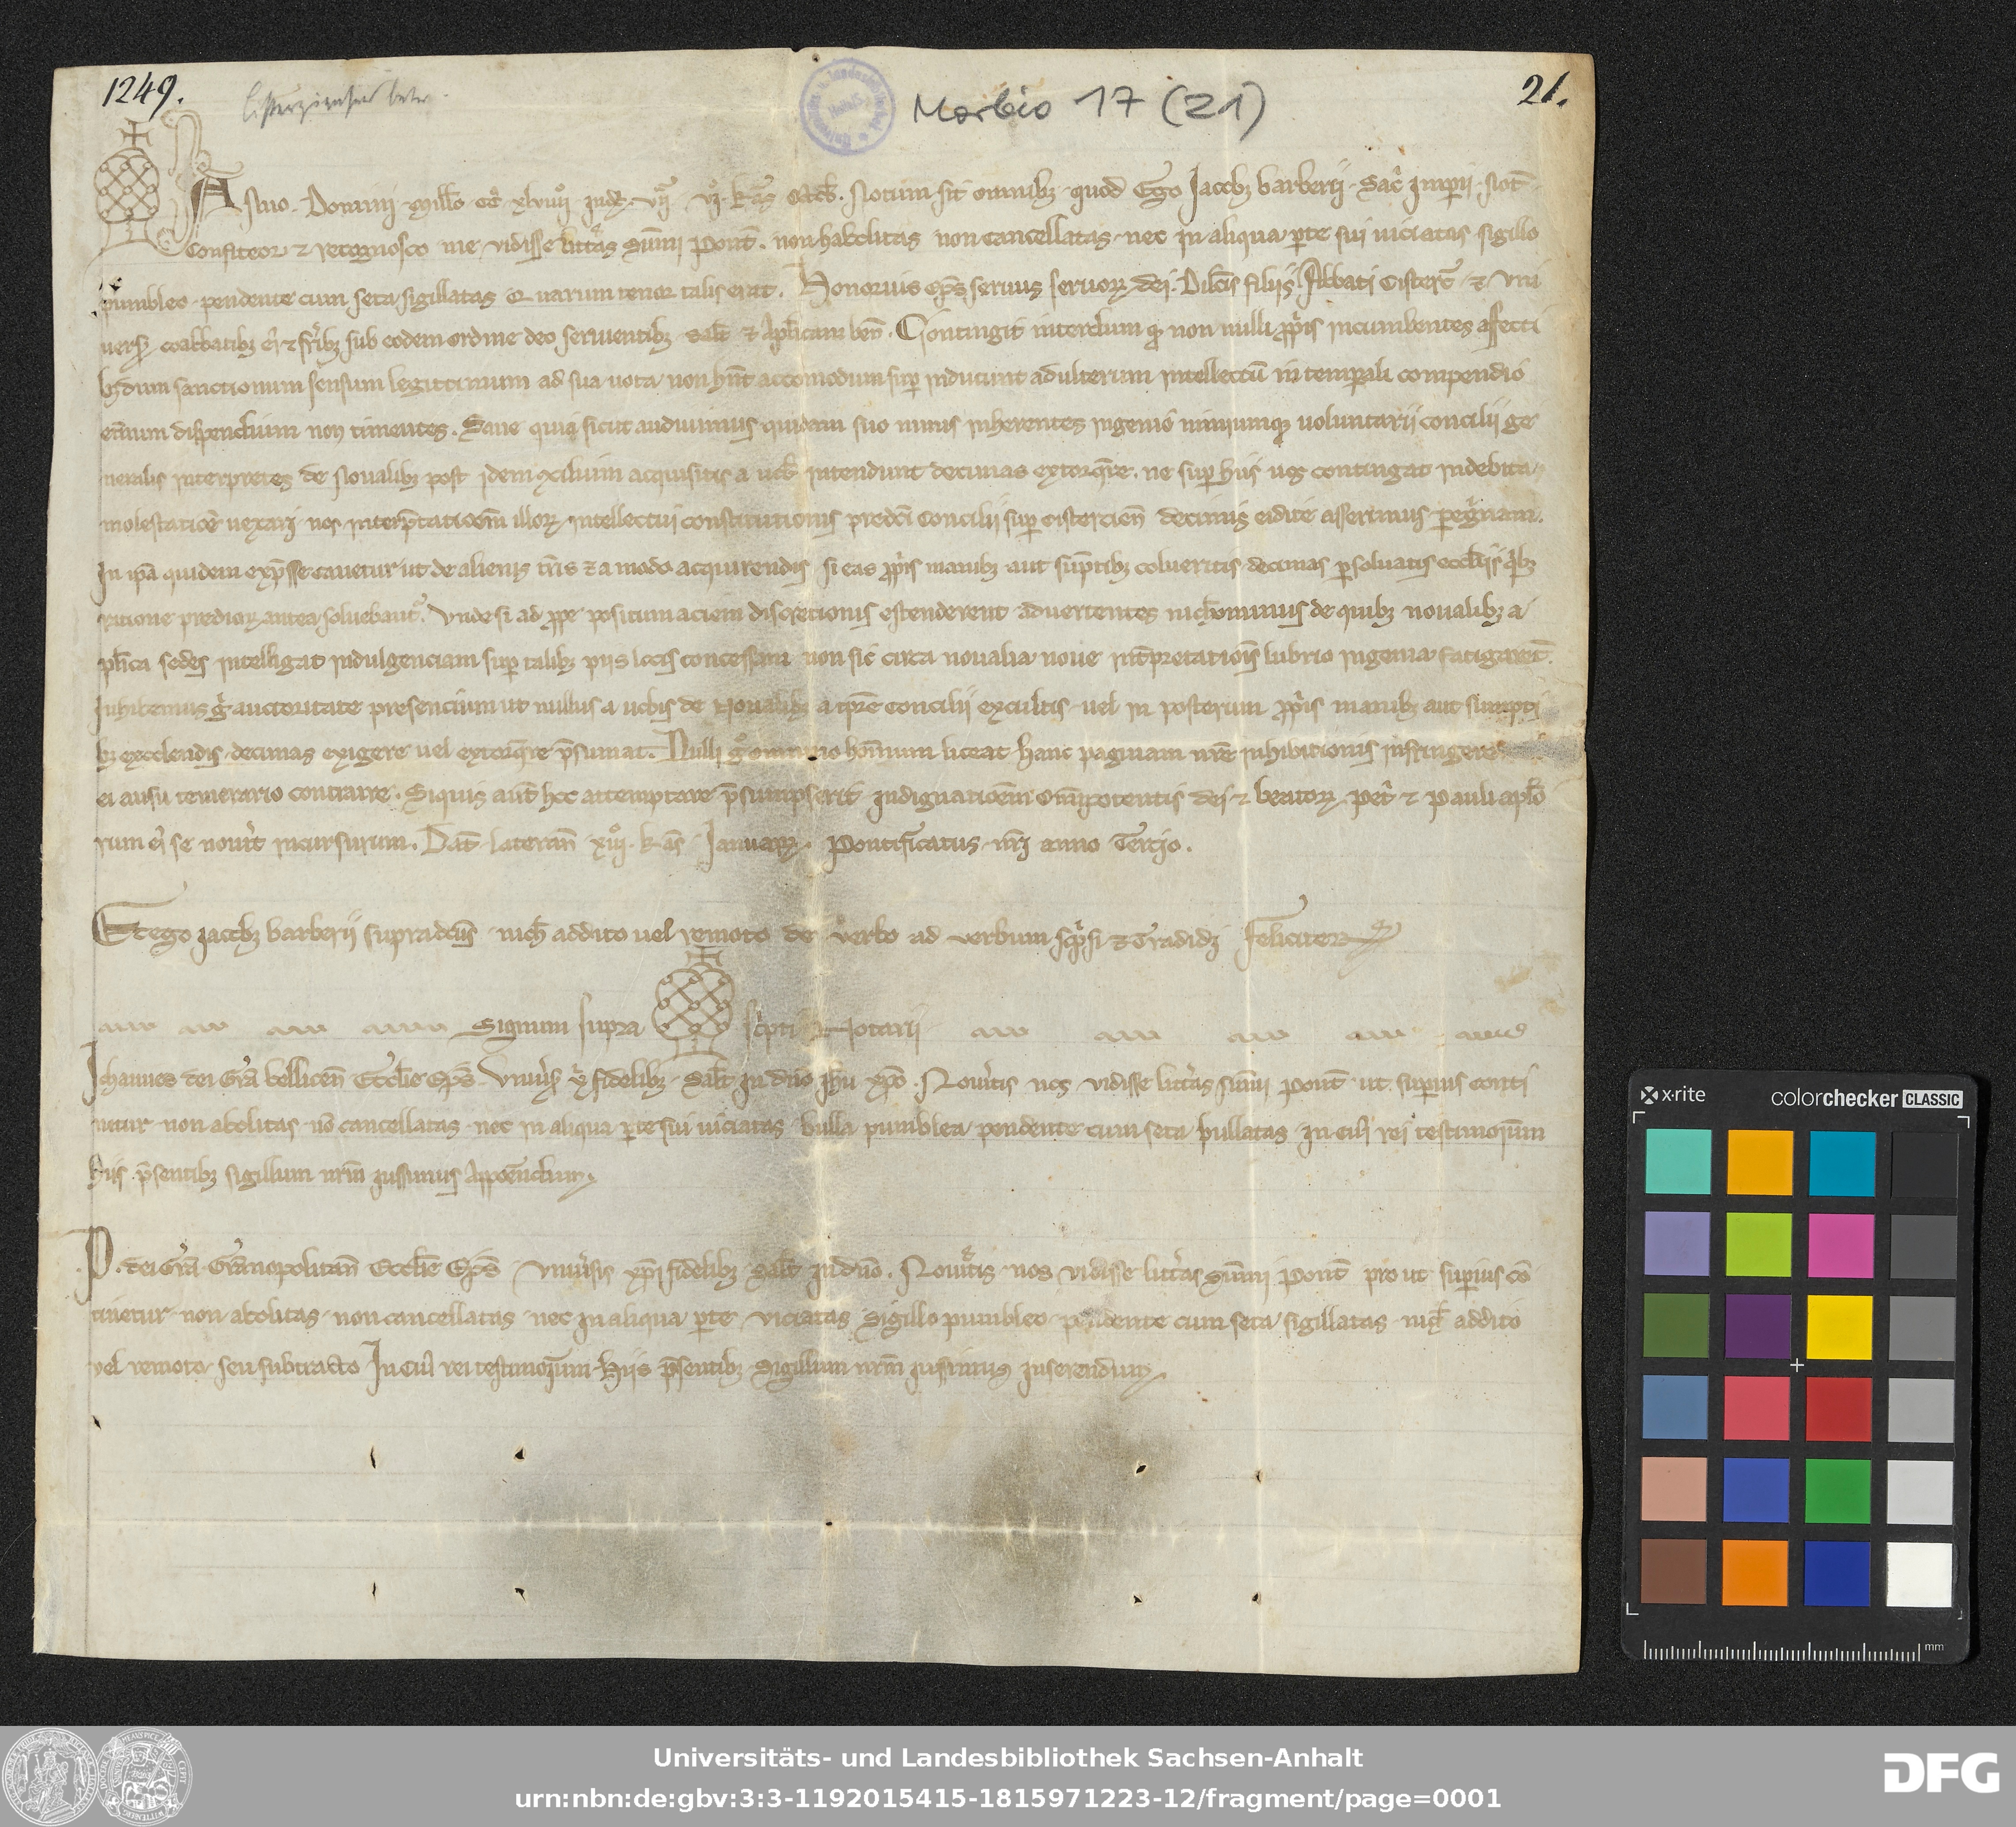 1249.
Morbio 17 (21)
21.
Anno Domini millo cc̊ xlviiij indc̄ vij vj kas Octob̄. Notum sit omnibꝫ quod Ego Jacobꝫ barberij Sac̄ Imperij Not̄
Confiteor ⁊ recognosco me vidisse litt̄as Sum̄i Pont̄. non habolitas non cancellatas nec in aliqua ꝑte sui uiciatas sigillo
pumbleo pendente cum seta sigillatas Quarum tenor talis erat. Honorius ep̄s seruus seruoꝝ dei. Dilc̄is filijs Abbati Cisterc̄ ⁊ vni
uersꝭ coabbatibꝫ ei᷒ ⁊ fr̄ibꝫ sub eodem ordine deo seruientibꝫ salt̄ ⁊ ap̄licam ben̄. Contingit interdum qꝫ non nulli ꝓp̄is incumbentes affecti
bꝫ dum sanctionum sensum legittimum ad sua uota non hn̄t accomodum suꝑ inducunt adulterum intellectū in temporali compendio
et̄num dispendium non timentes. Sane quia sicut audiuimus quidam suo nimis inherentes ingenio nimiumqꝫ uoluntarij concilij ge
neralis interpretes de Noualibꝫ post idem ꝯcilium acquisitis a uob̄ intendunt decimas extorqꝫre. ne suꝑ hijs uos contingat indebita
molestatiōe uexari nos interp̄tatioēm illoꝝ intellectui constitutionis predc̄i Concilij suꝑ cistercien̄ decimis edite asserimus peg̃nam.
In ip̄a quidem exp̄sse cauetur ut de alienis t̄ris ⁊ a modo acquirendis si eas ꝓp̄is manibꝫ aut sūptibꝫ colueritis decimas ꝑsoluatis eccl̄ijs q̄bꝫ
ratione predioꝝ antea soluebant᷒. Vnde si ad ꝓpe positum aciem discretionis estenderent aduertentes nich̄ominus de quibꝫ noualibꝫ a
pl̄ica sedes intelligat indulgenciam suꝑ talibꝫ pijs locis concessam non sic circa noualia noue int̄pretatiōis lubrio ingenia fatigarent̄.
Inhibemus g̊ auctoritate presencium ut nullus a uobis de Noualibꝫ a tp̄re Concilij excultis uel in posterum ꝓp̄is manibꝫ aut sumpti
bꝫ excolendis decimas exigere uel extorqꝫre p̄sumat. Nulli g̊ omnino hom̄inum liceat hanc paginam nr̄e inhibitionis infringere
ei ausu temerario contraire. Siquis aut̄ hoc attemptare p̄sumpserit Indignatioēm Om̄ipotentis dei ⁊ beatoꝝ Pet̄ ⁊ Pauli ap̄lo
rum ei᷒ se nouīt incursurum. Dat̄ lateran̄ xiij kas Januarꝭ. Pontificatus nr̄i anno Tercio.
Et ego Jacobꝫ barberij supradcūs nich̄ addito uel remoto de verbo ad verbum sc̄psi ⁊ Tradidi feliciter
Signum supra sc̄pti Notarij
Iohannes dei Gr̄a bellicen̄ Eccl̄ie Ep̄s Vniuīsꝭ xp̄i fidelibꝫ Salt̄ in dn̄o ih̄u xp̄o. Nou̾itis nos vidisse litt̄as sum̄i Pont̄ ut suꝑius conti
netur non abolitas nō cancellatas nec in aliqua ꝑte sui uiciatas bulla pumblea pendente cum seta bullatas in cui᷒ rei testimoīum
hijs p̄sentibꝫ sigillum nr̄m iussimus Appoēndum.
P. dei Gr̄a Gr̄anopolitan̄ Eccl̄ie Ep̄s Vniuīsis xp̄i fidelibꝫ Salt̄ in dn̄o. Nou̾itis nos vidisse litt̄as Sum̄i Pont̄ pro ut suꝑius cō
tinetur non abolitas non cancellatas nec in aliqua ꝑte viciatas Sigillo pumbleo pendente cum seta sigillatas nich̄ addito
vel remoto seu subtracto In cui᷒ rei testimoīum hijs p̄sentibꝫ Sigillum nr̄m iussimus inserendum.
x·rite
colorchecker CLASSIC
mm
Universitäts- und Landesbibliothek Sachsen-Anhalt
urn:nbn:de:gbv:3:3-1192015415-1815971223-12/fragment/page=0001
DFG